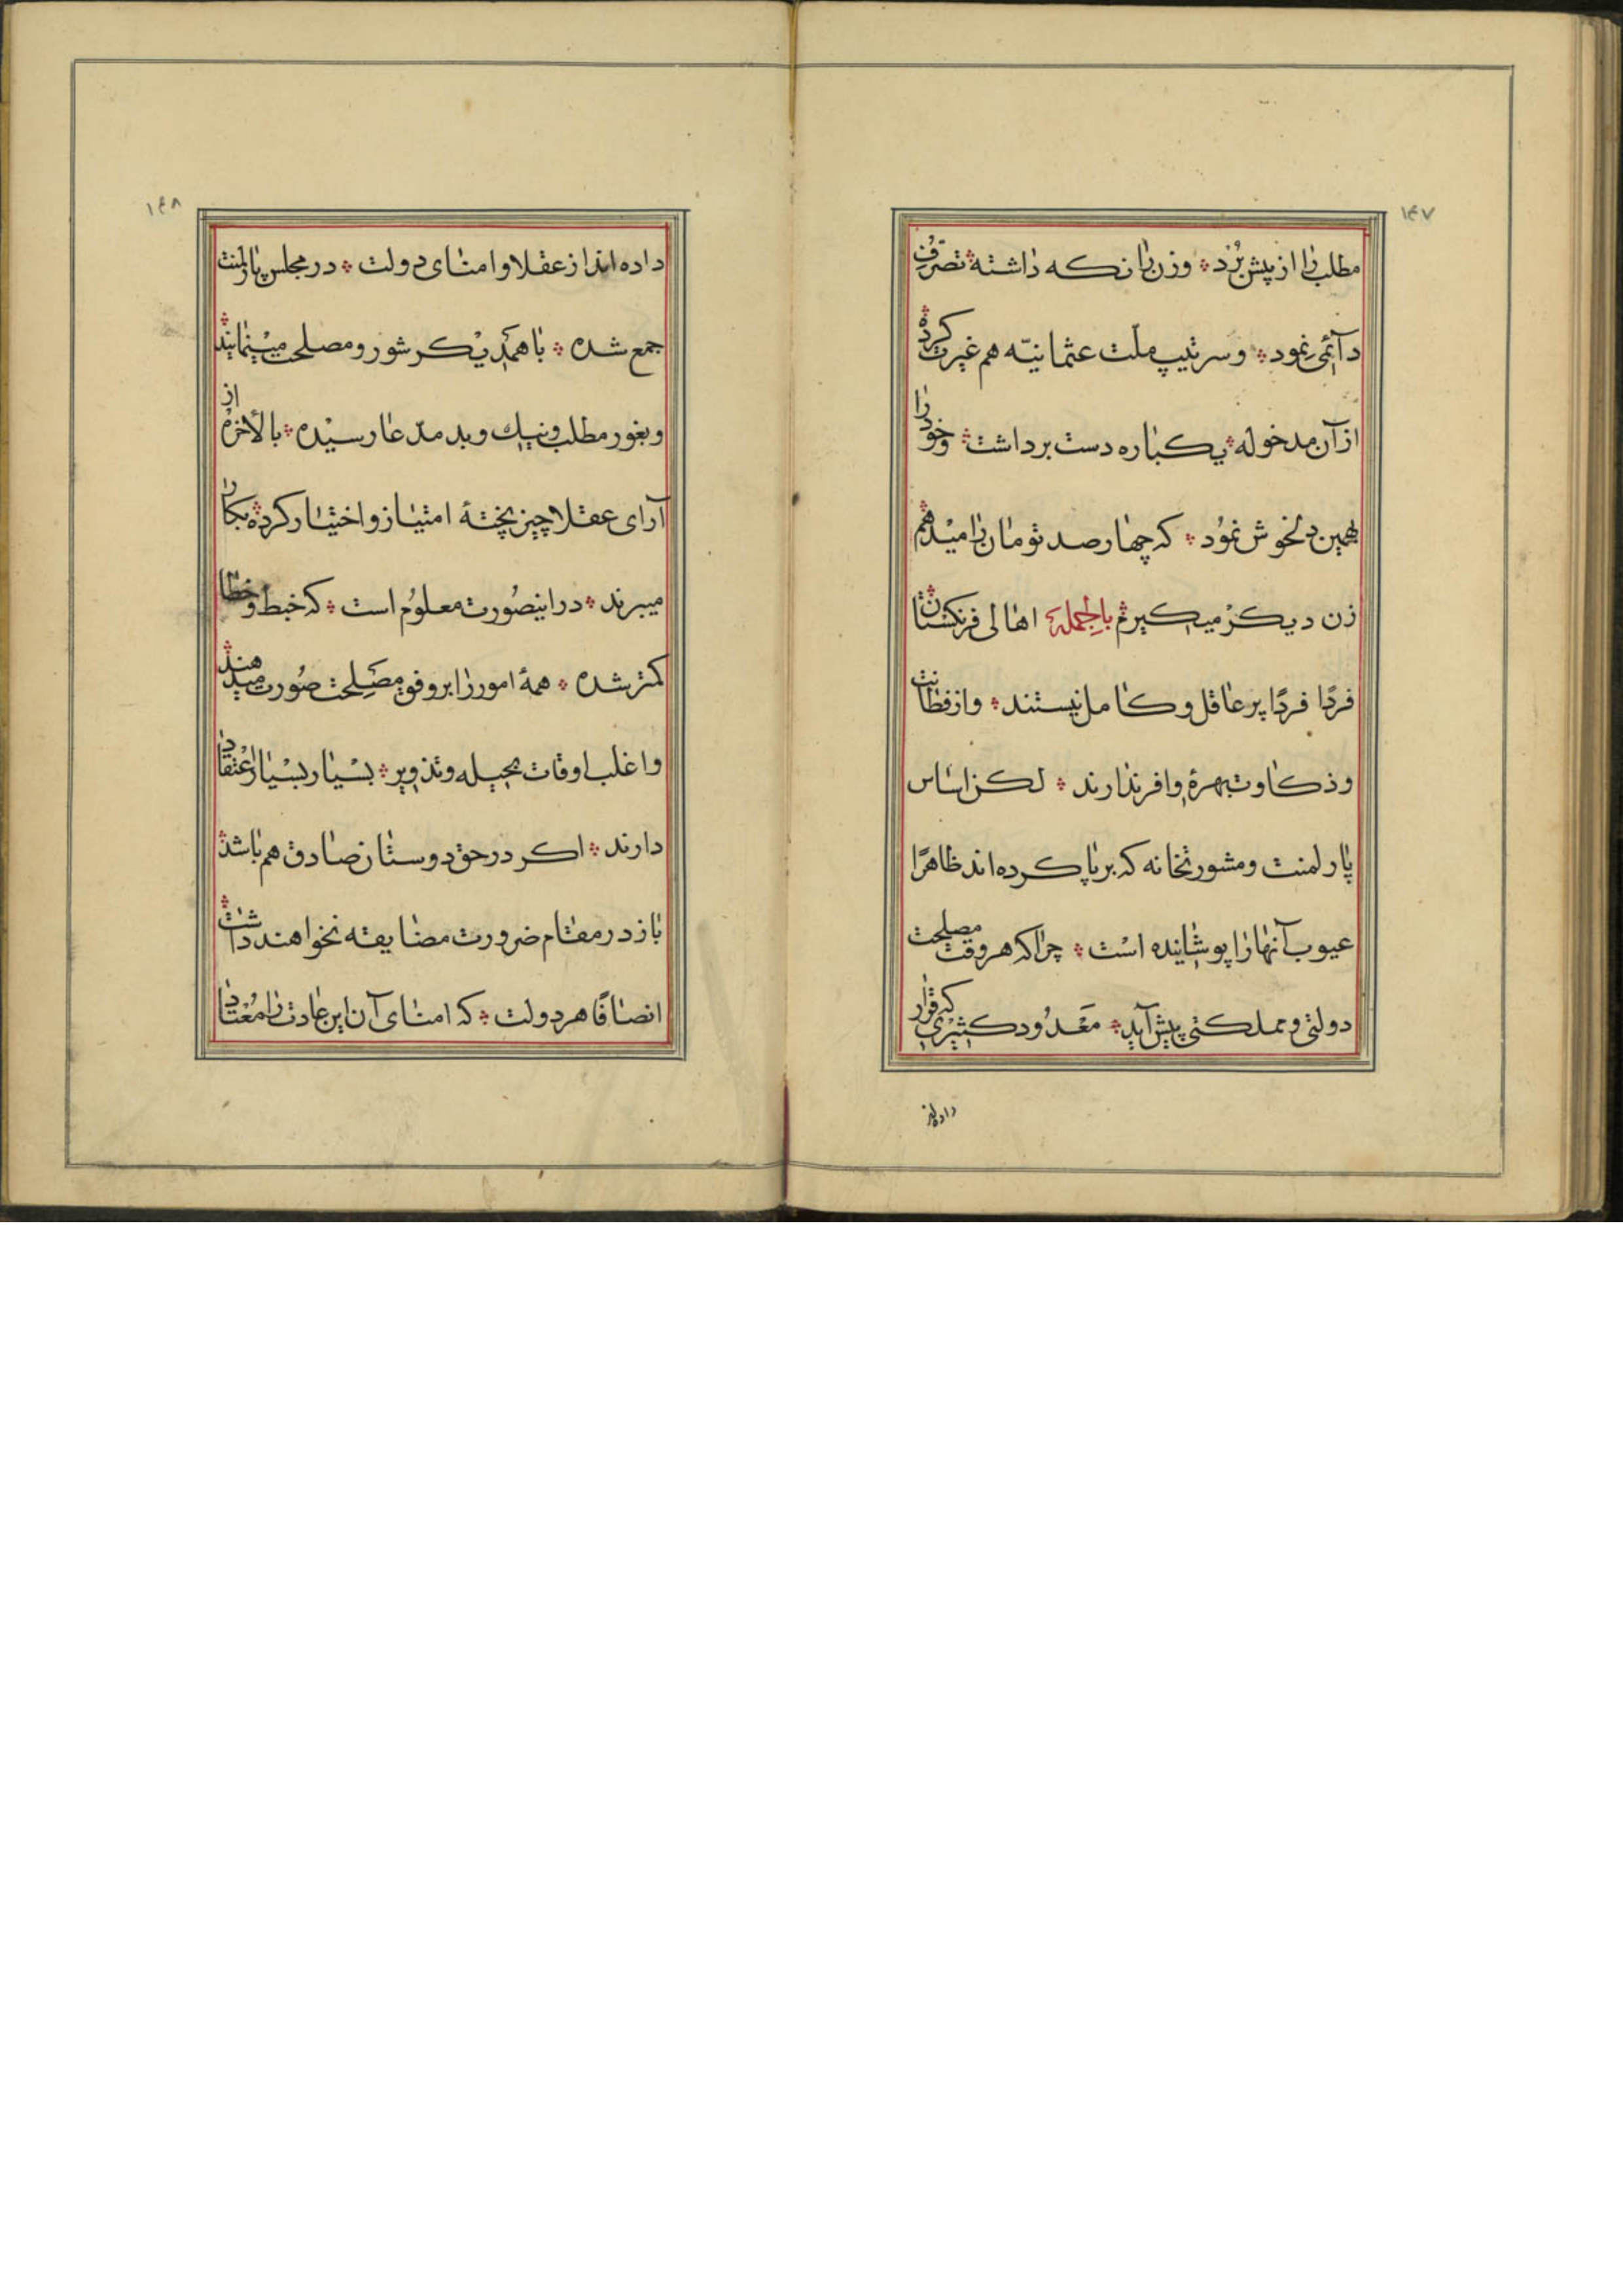 ۱۴۷
مطلب را از پیش برد ؞ و زن را نکه داشته ؞ تصرف
دائمی نمود ؞ و سرتیپ ملت عثمانیّه هم غیرت کرده ؞
از آن مدخوله ؞ یکباره دست برداشت ؞ و خود را
بهمین دلخوش نمود ؞ که چهارصد تومان را میدهم ؞
زن دیکر میکیرم ؞ بالجمله اهالی فرنکستان ؞
فردًا فردًا پر عاقل و کامل نیستند ؞ و از فطانت
و ذکاوت بهرهٔ وافر ندارند ؞ لکن اساس
پارلمنت و مشورتخانه که برپا کرده‌اند ظاهرًا
عیوب آنها را پوشانیده است ؞ چرا که هر وقت مصلحت
دولتی و مملکتی پیش آید ؞ معدود کثیری که قرار
داده‌اند
۱۴۸
داده‌اند از عقلا و امنای دولت ؞ در مجلس پارلمنت
جمع شده ؞ با همدیکر شور و مصلحت مینمایند ؞
و بغور مطلب و نیک و بد مدّعا رسیده ؞ بالأخره از
آرای عقلا چیز پختهٔ امتیاز و اختیار کرده ؞ بکار
میبرند ؞ در اینصورت معلوم است ؞ که خبط و خطا
کمتر شده ؞ همهٔ امور را بر وفق مصلحت صورت میدهند ؞
و اغلب اوقات بحیله و تذویر ؞ بسیار بسیار اعتقاد
دارند ؞ اکر در حق دوستان صادق هم باشد ؞
باز در مقام ضرورت مضایقه نخواهند داشت ؞
انصافًا هر دولت ؞ که امنای آن این عادت را معتاد